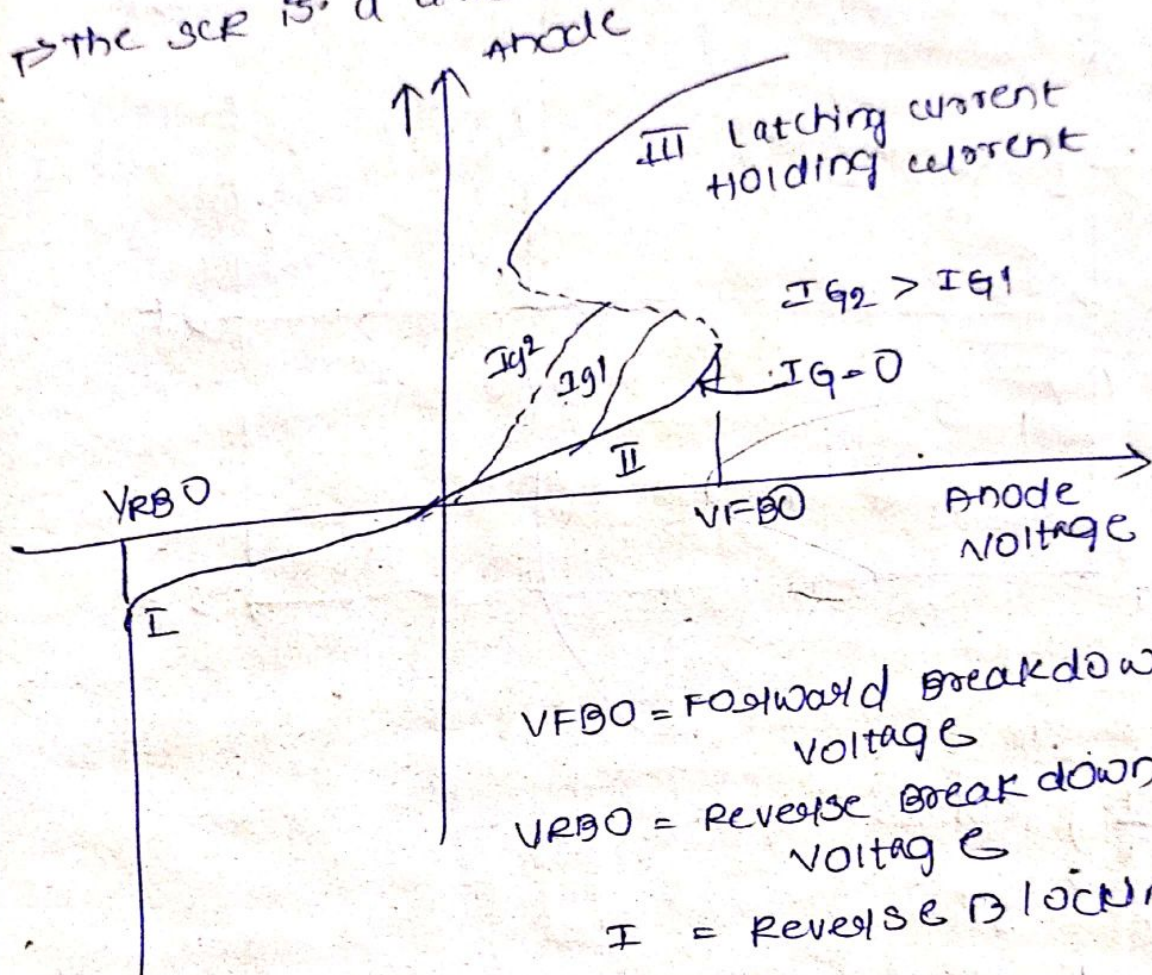 → The SCR is a
Anode
III Latching current
Holding current
IG2 > IG1
Ig2
Ig1
IG=0
II
VRBO
VFBO
Anode
Voltage
I
VFBO = Forward Breakdow
Voltage
VRBO = Reverse Breakdown
Voltage
I = Reverse Block